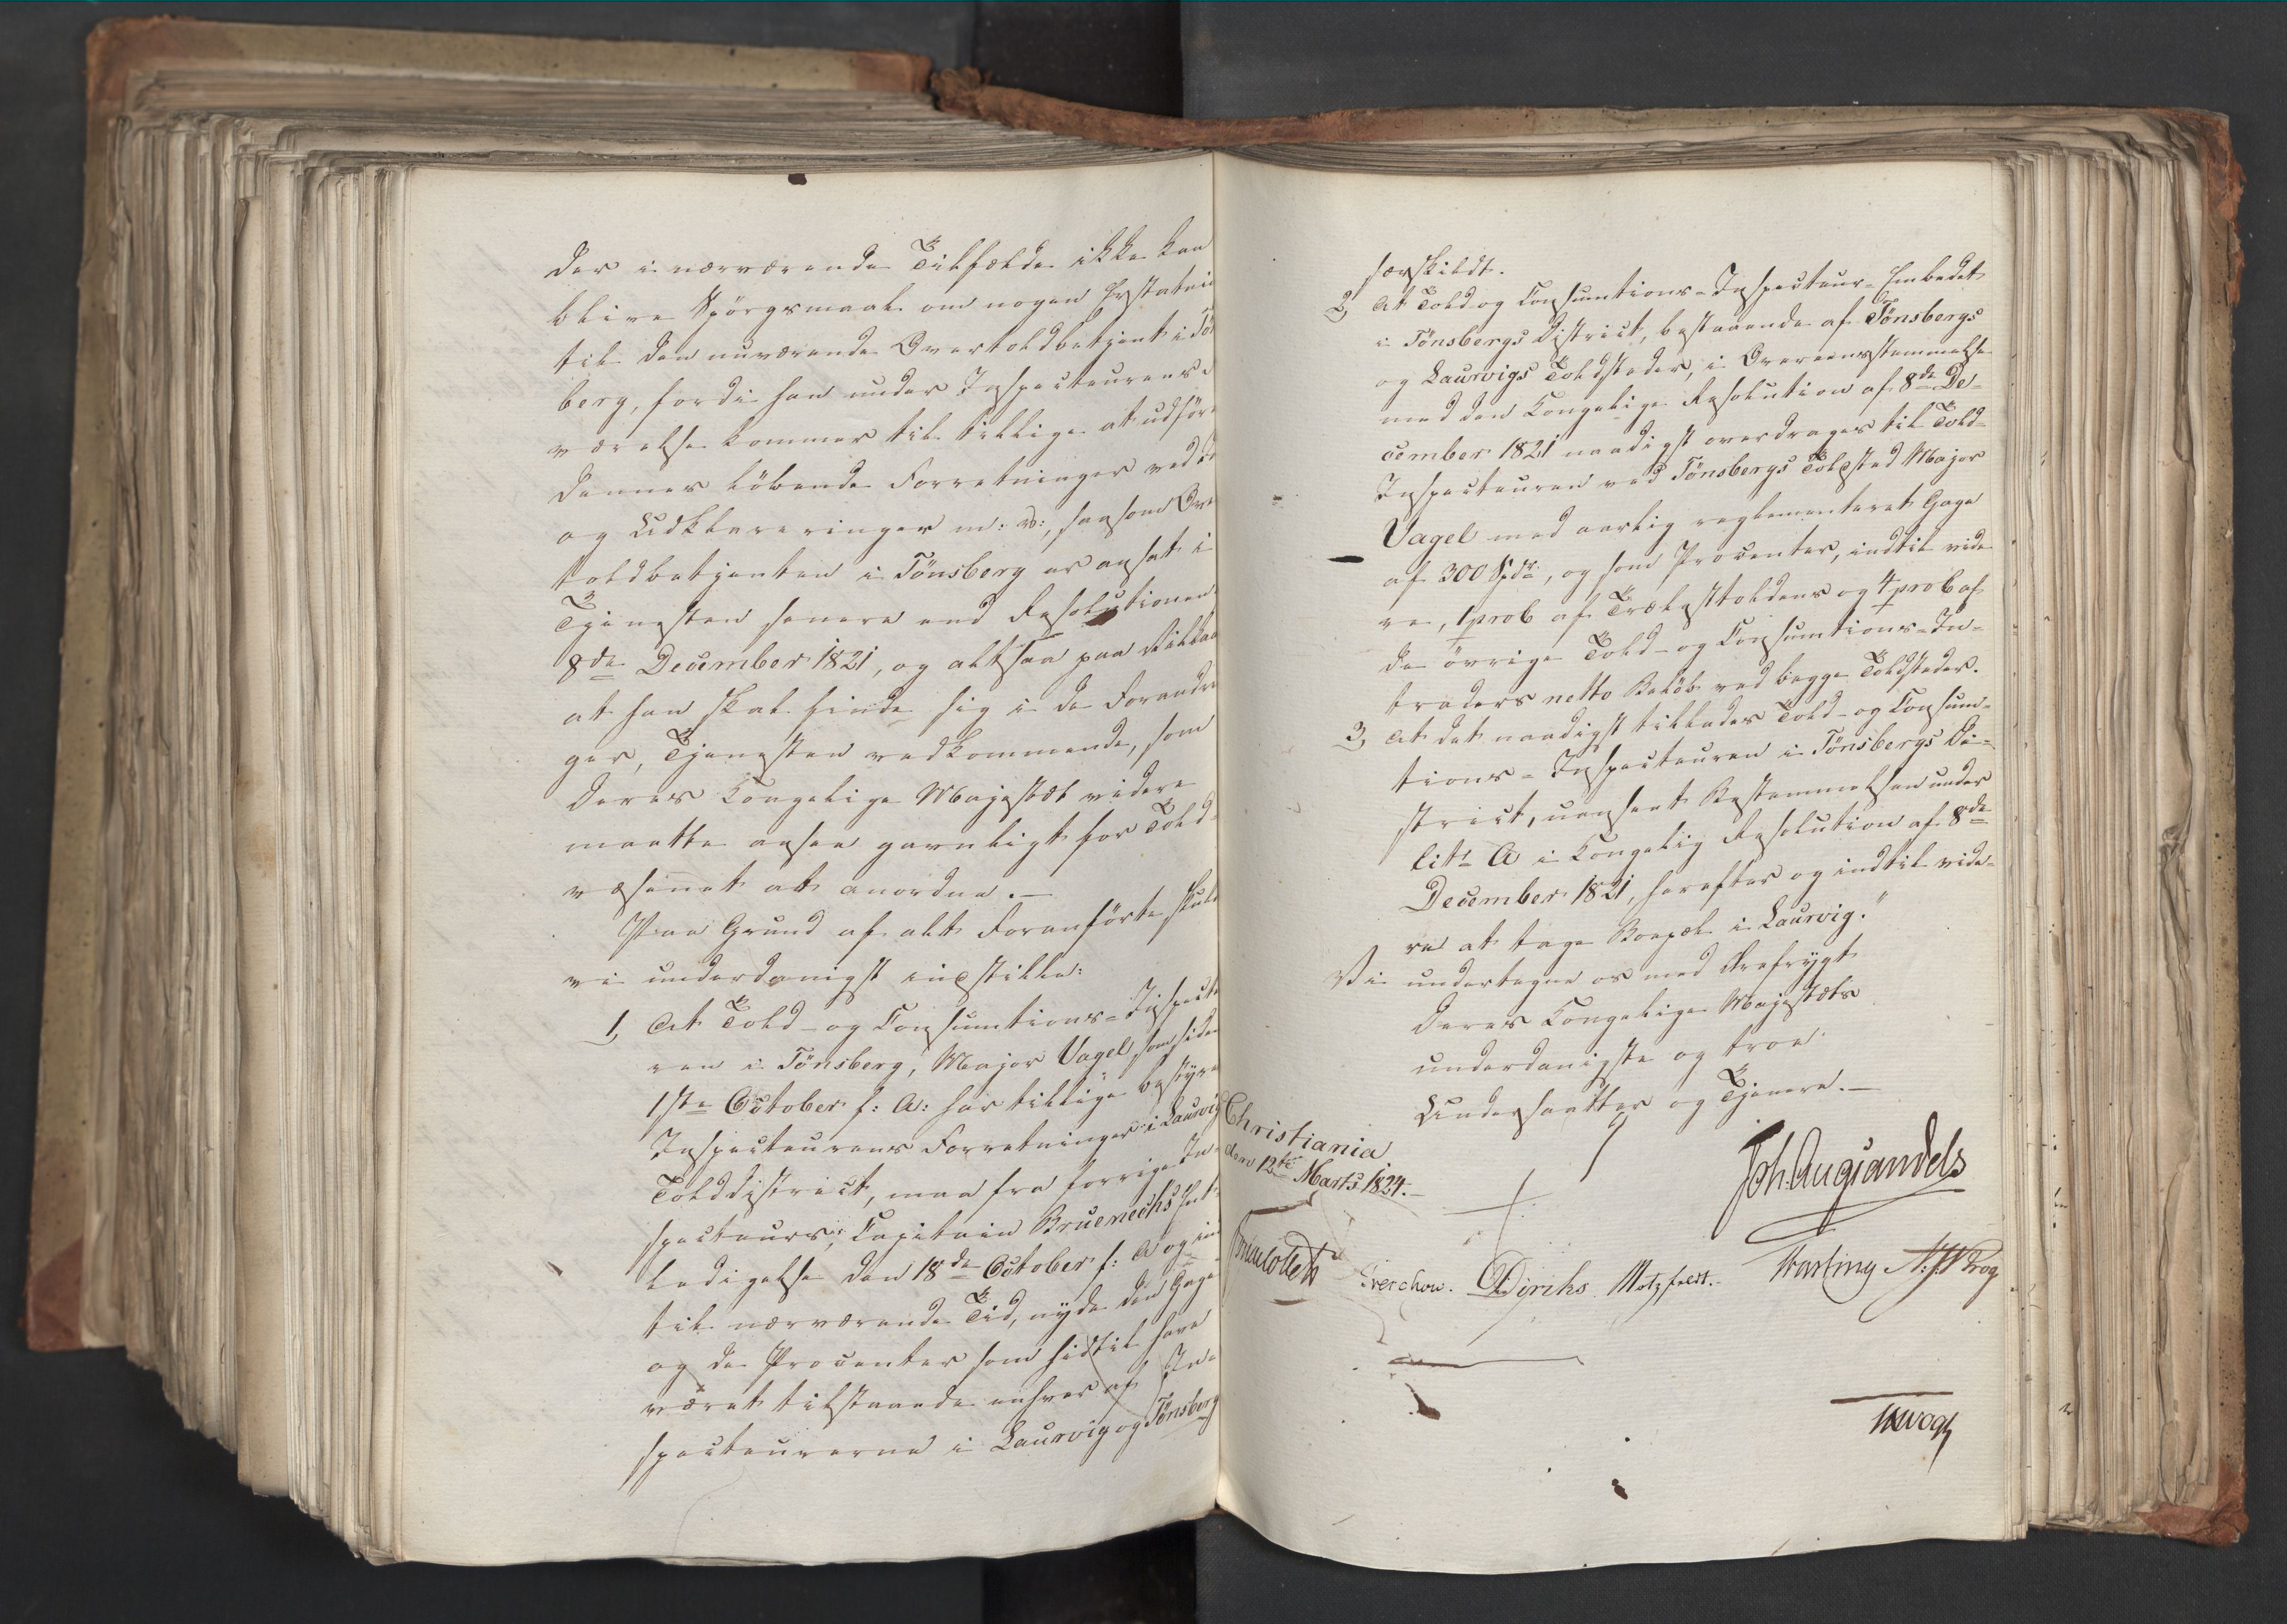 der i nærværende Tilfælde ikke kan
blive Spörgsmaal om nogen Erstatni
til den nuværende Overtoldbetjent i Tön
berg, fordi han under Inspecteurens
værelse kommer til tillige at udför
dennes löbende Forretninger ved
og Udklareringer m: v:, saasom Ove
toldbetjenten i Tönsberg er ansat i
Tjenesten senere end Resolutionen
8de December 1821, og altsaa paa Vilkaa
at han skal finde sig i de Forandri
ger, Tjenesten vedkommende, som
Deres Kongelige Majestæt videre
maatte ansee gavnligt for Told-
væsenet at anordne.—
Paa Grund af alt Foranförte skulde
vi underdanigst indstille:
1, At Told- og Consumtions-Inspecte
ren i Tönsberg, Major Vagel, som siden
1ste October f: A: har tillige bestyre
Inspecteurens Forretninger i Laurvig
Tolddistrict, maa fra forrige In-
specteurs, Capitain Bruenechs Ent-
ledigelse den 18de October f: A og ind
til nærværende Tid, nyde den Gage
og de Procenter som hidtil have
været tilstaaede enhver af In-
specteurerne i Laurvig og Tönsberg
særskildt.
2, At Told og Consumtions-Inspecteur-Embedet
i Tönsbergs District, bestaaende af Tönsbergs
og Laurvigs Toldsteder, i Overeensstemmelse
med den Kongelige Resolution af 8de De-
cember 1821 naadigst overdrages til Told-
Inspecteuren ved Tönsbergs Toldsted Major
Vagel med aarlig reglementeret Gage
af 300 Spdr, og som Procenter, indtil vide
re, 1 proC af Trælasttoldens og 4 proC af
de övrige Told- og Consumtions-In-
traders netto Belöb ved begge Toldsteder.
3, At det naadigst tillades Told- og Consum-
tions-Inspecteuren i Tönsbergs Di-
strict, uanseet Bestemmelsen under
Litr A i Kongelig Resolution af 8de
December 1821, herefter og indtil vide-
re at tage Boepæl i Laurvig."
Vi undertegne os med Ærefrygt
Deres Kongelige Majestæts
underdanigste og troe
Undersaatter og Tjenere.—
Christiania
den 12te Marts 1824.—
Joh. Aug Sandels
Jonas Collett
Treschow. Diriks. Motzfeldt. Fasting N. J. W Krog